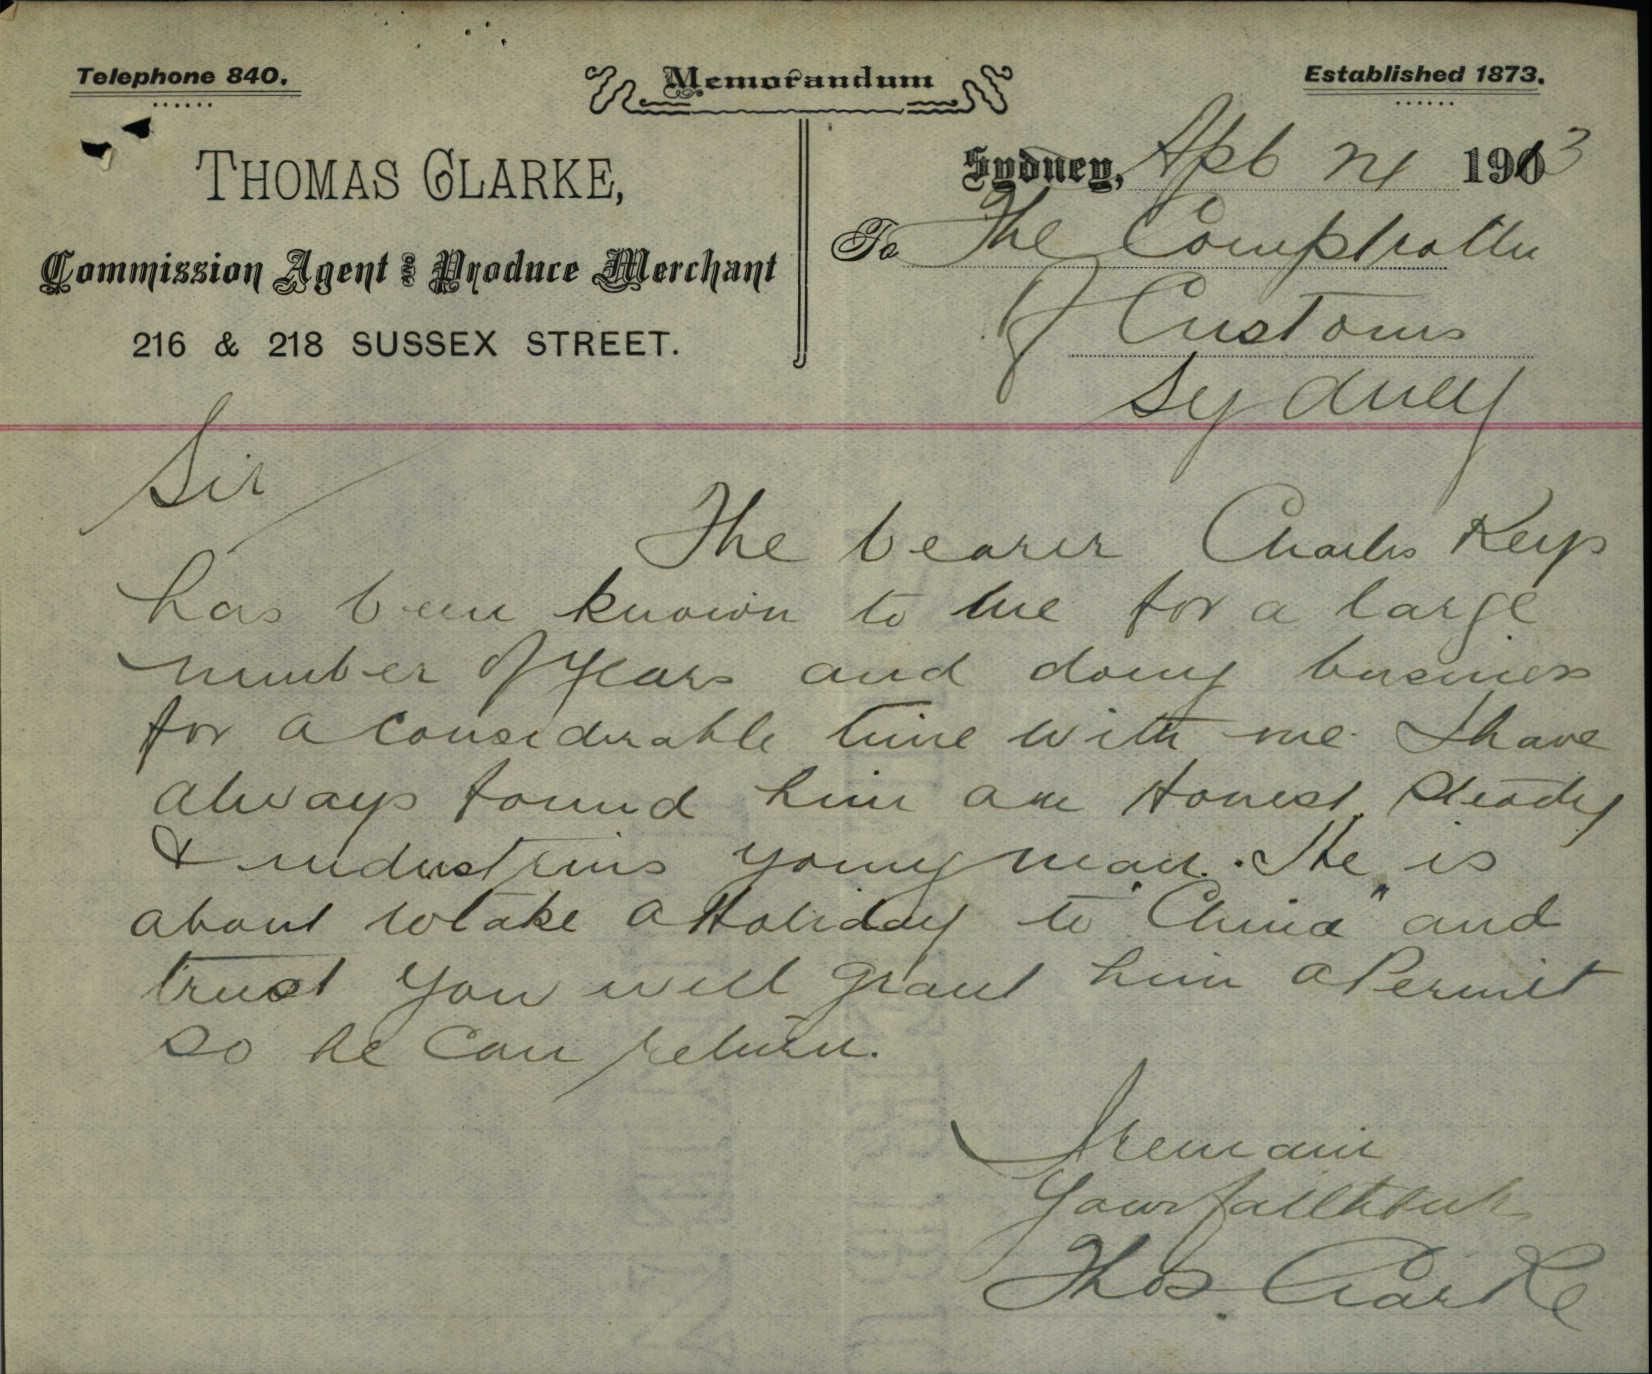 Telephone 840.
Memorandum
Established 1873.
THOMAS CLARKE,
Commission Agent & Produce Merchant
216 & 218 SUSSEX STREET.
Sydney, 1913
To The Comptroller
of Customs
Sydney
Sir
The bearer Charles Keys
has been known to me for a large
number of years and doing business
for a considerable time with me I have
always found him an Honest, Steady
& industrius young man. He is
about to take a Holiday to "China" and
trust you will grant him a Permit
so he can return.
I remain
Yours faithfully
Thos. Clarke